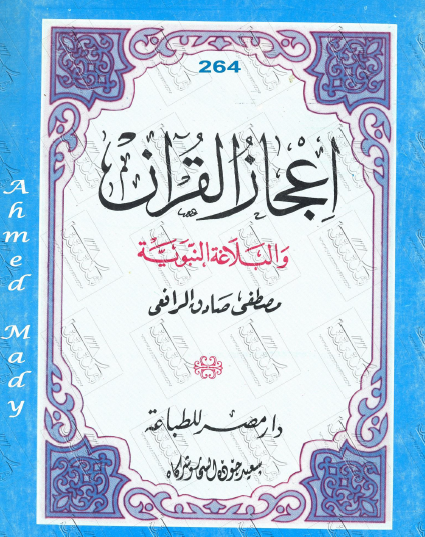 264
إعجاز القرآن
والبلاغة النبوية
مصطفى صادق الرافعي
دار مصر للطباعة
سعيد جودة السحار وشركاه
Ahmed Mady